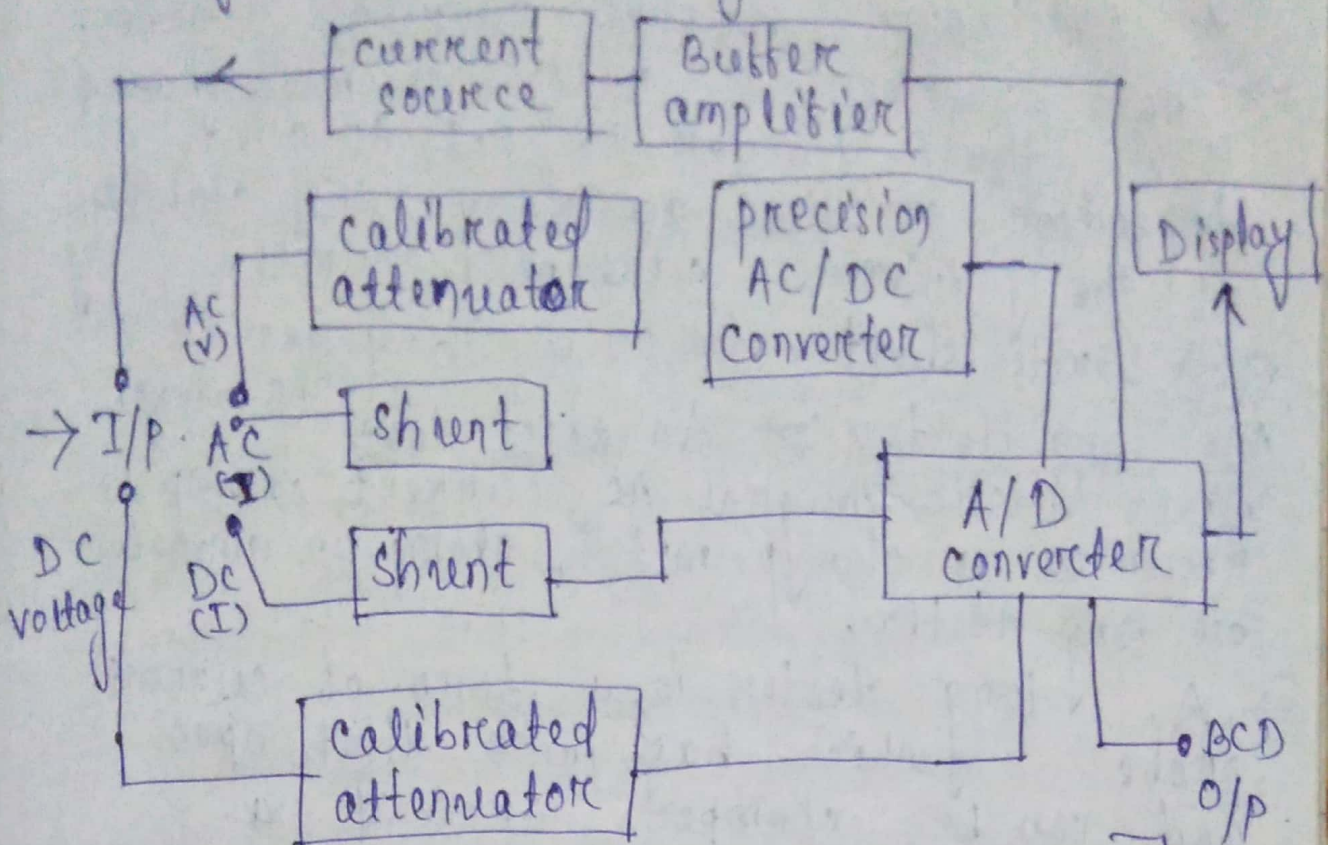 current
source
Buffer
amplifier
calibrated
attenuator
precision
AC/DC
converter
Display
AC
(V)
→ I/P.
AC
(I)
shunt
A/D
converter
DC
voltage
DC
(I)
shunt
calibrated
attenuator
BCD
O/P